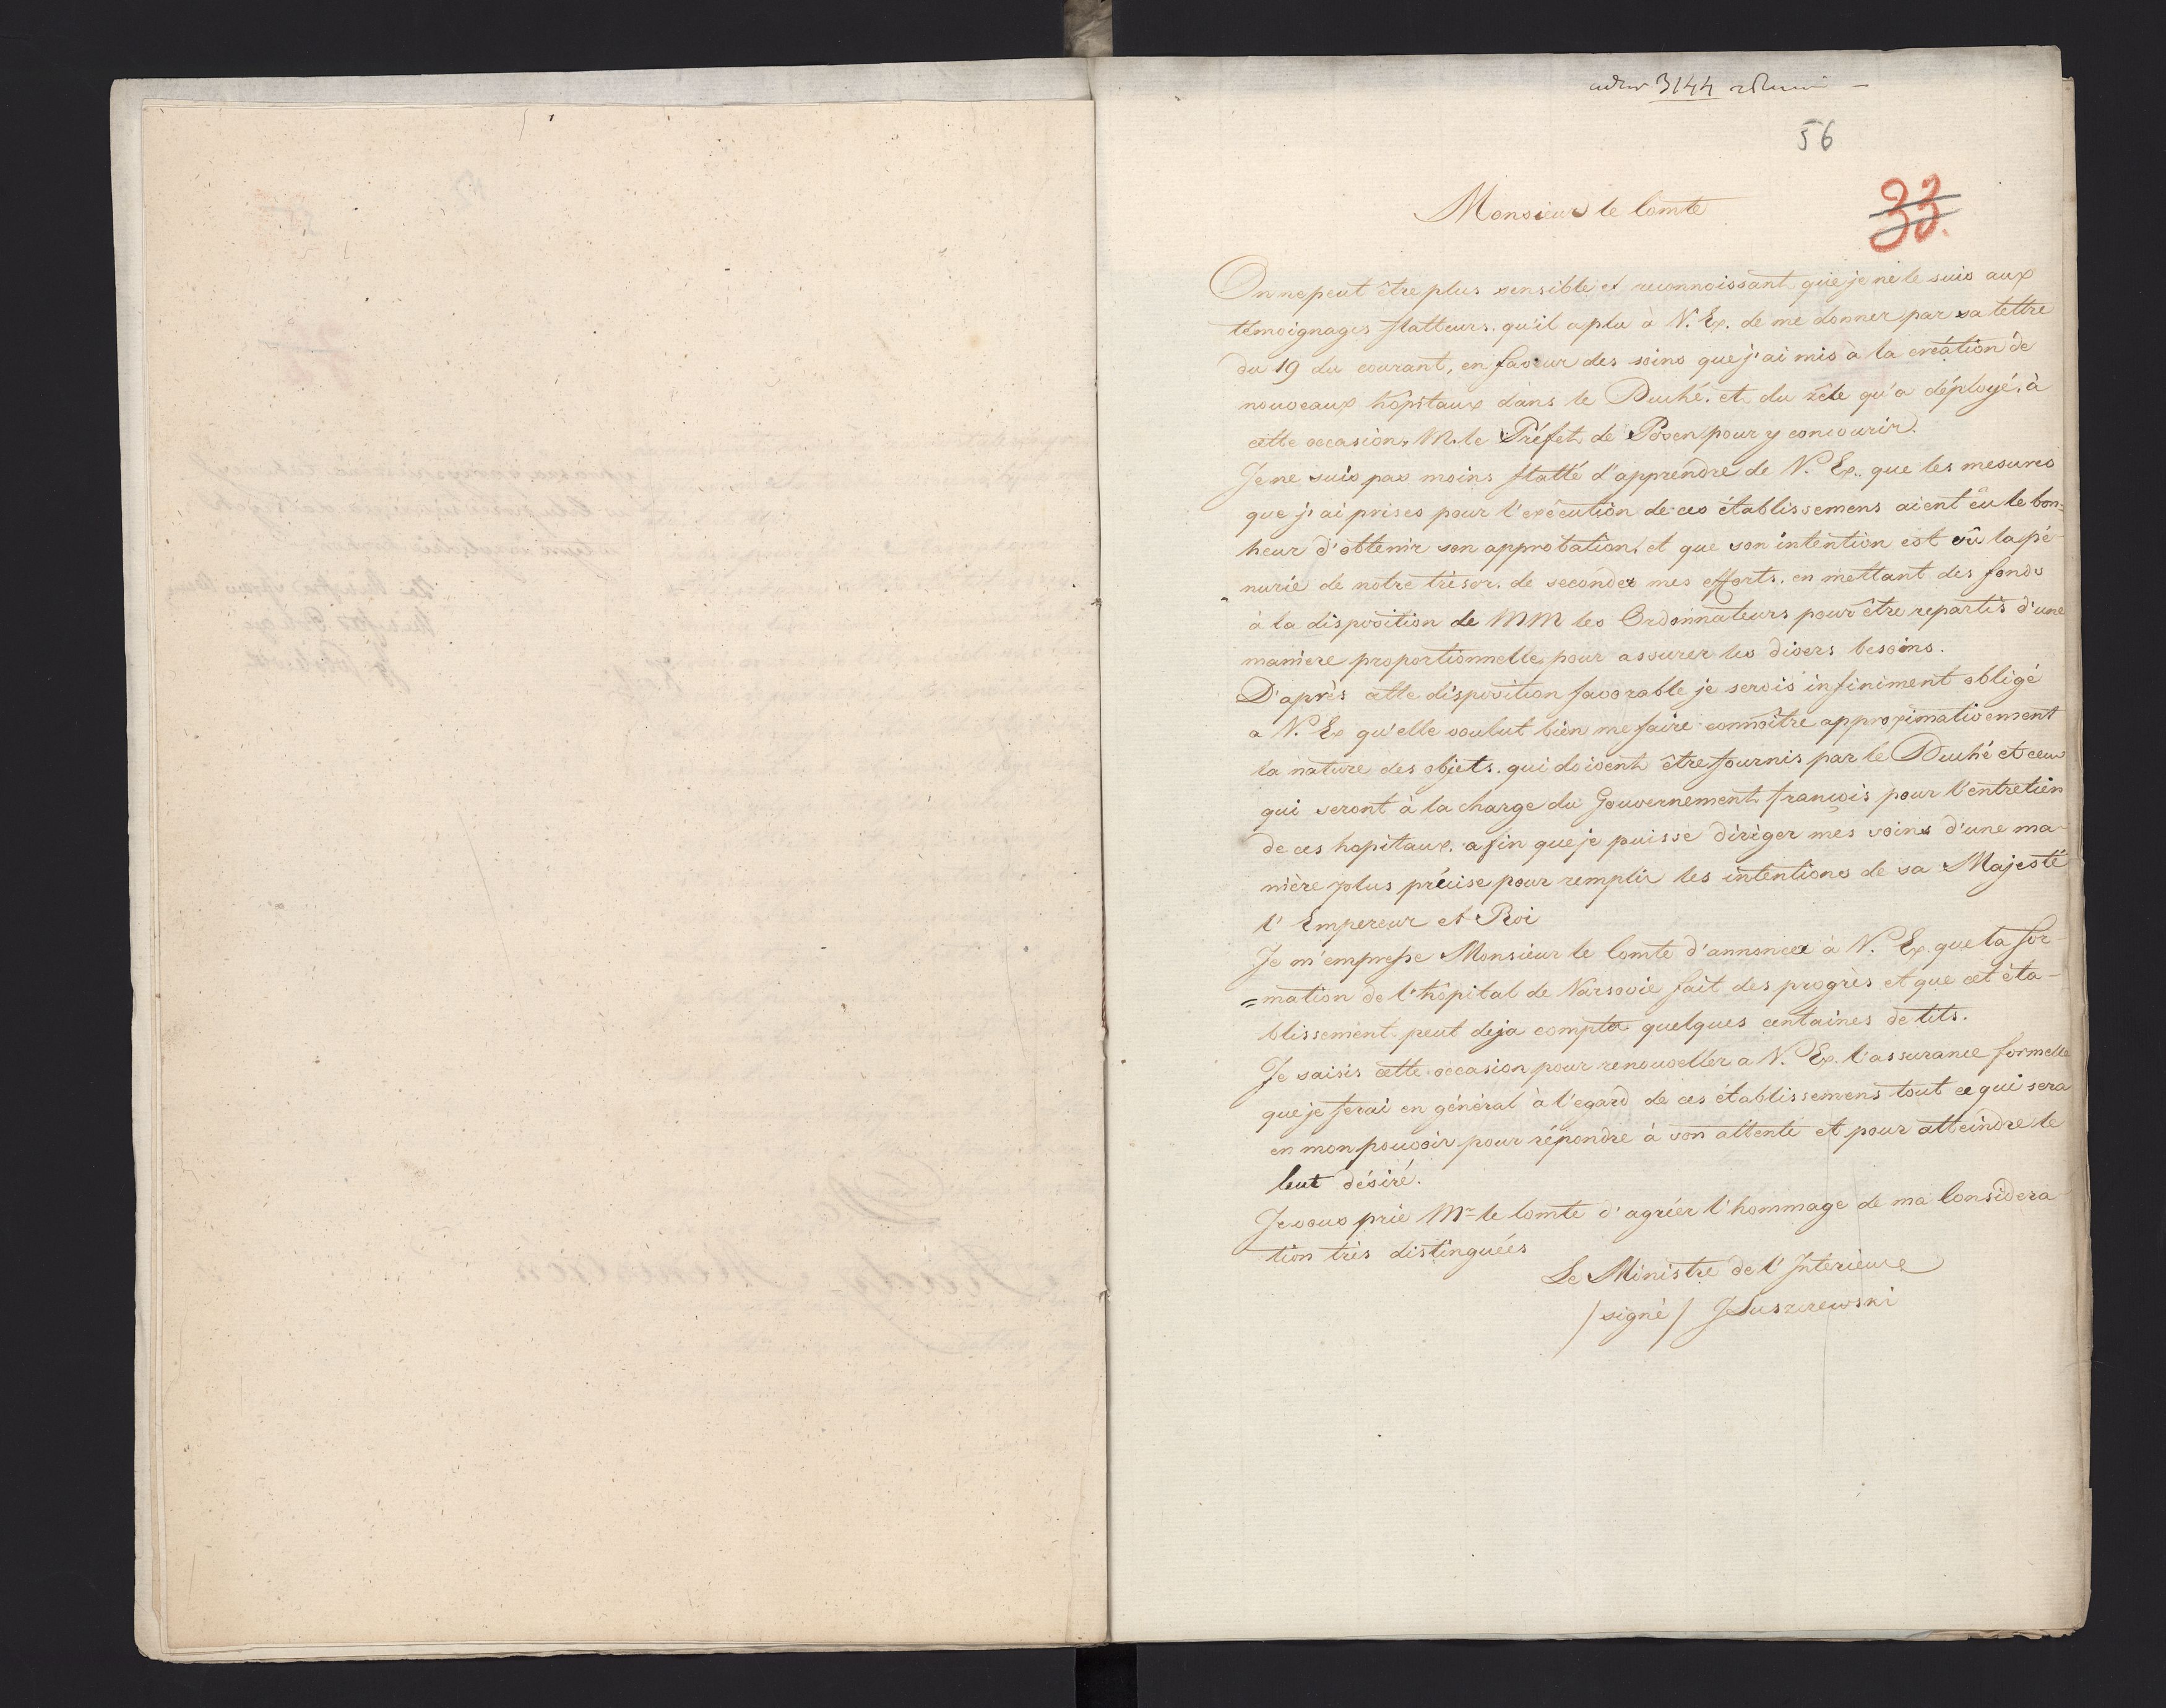 3144
56
33.
Monsieur le Comte
On ne peut être plus sensible et reconnoissant que je ne le suis aux
témoignages flatteurs. qu'il a plu à V. Ex. de me donner par sa lettre
du 19 du courant, en faveur des soins que j'ai mis à la création de
nouveaux hôpitaux dans le Duché. et du zêle qu'a déployé, à
cette occasion, M. le Préfet de Posen pour y concourir.
Je ne suis pas moins flatté d'apprendre de V. Ex. que les mesures
que j'ai prises pour l'exécution de ces établissemens aient êu le bon=
heur d'obtenir son approbation, et que son intention est vû la pé-
nurie de notre trésor. de seconder mes efforts. en mettant des fonds
à la disposition de MM les Ordonnateurs pour être repartis d'une
maniere proportionnelle pour assurer les divers besoins.
D'après cette disposition favorable je serois infiniment obligé
a V. Ex qu'elle voulut bien me faire connoître approximativement
la nature des objets. qui doivent être fournis par le Duché et ceux
qui seront à la charge du Gouvernement françois pour l'entretien
de ces hopitaux. afin que je puisse diriger mes soins d'une ma-
nière plus précise pour remplir les intentions de sa Majesté
l'Empereur et Roi
Je m'empresse Monsieur le Comte d'annoncer à V. Ex. que la for-
=mation de l'hôpital de Varsovie fait des progrès et que cet éta-
blissement peut deja compter quelques centaines de lits.
Je saisis cette occasion pour renouveller a V. Ex. l'assurance formelle
que je ferai en général à l'egard de ces établissemens tout ce qui sera
en mon pouvoir pour répondre à son attente et pour atteindre le
but désiré.
Je vous prie Mr le Comte d'agréer l'hommage de ma Considera-
tion très distinguées
Le Ministre de l'Interieure
/ signé / J Łuszczewski